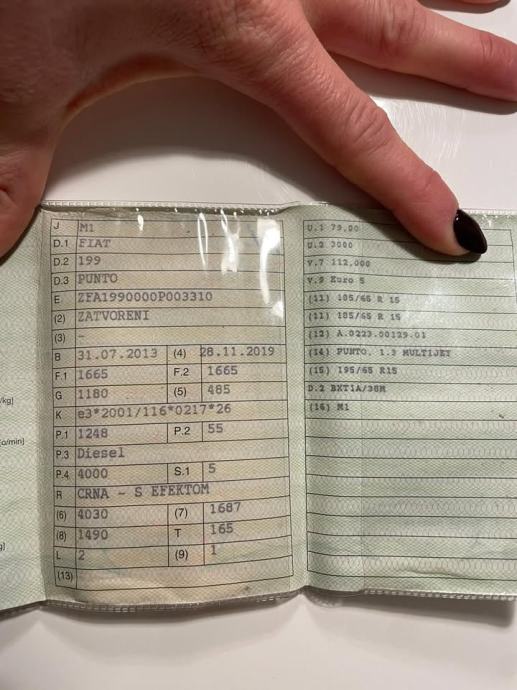 /kg]
[o/min]
g]
J M1
D.1 FIAT
D.2 199
D.3 PUNTO
E ZFA1990000P003310
(2) ZATVORENI
(3) -
B 31.07.2013 (4) 28.11.2019
F.1 1665 F.2 1665
G 1180 (5) 485
K e3*2001/116*0217*26
P.1 1248 P.2 55
P.3 Diesel
P.4 4000 S.1 5
R CRNA - S EFEKTOM
(6) 4030 (7) 1687
(8) 1490 T 165
L 2 (9) 1
(13)
U.1 79,00
U.2 3000
V.7 112,000
V.9 Euro 5
(11) 185/65 R 15
(11) 185/65 R 15
(12) A.0223.00129.01
(14) PUNTO. 1.3 MULTIJET
(15) 195/65 R15
D.2 BXT1A/38M
(16) M1